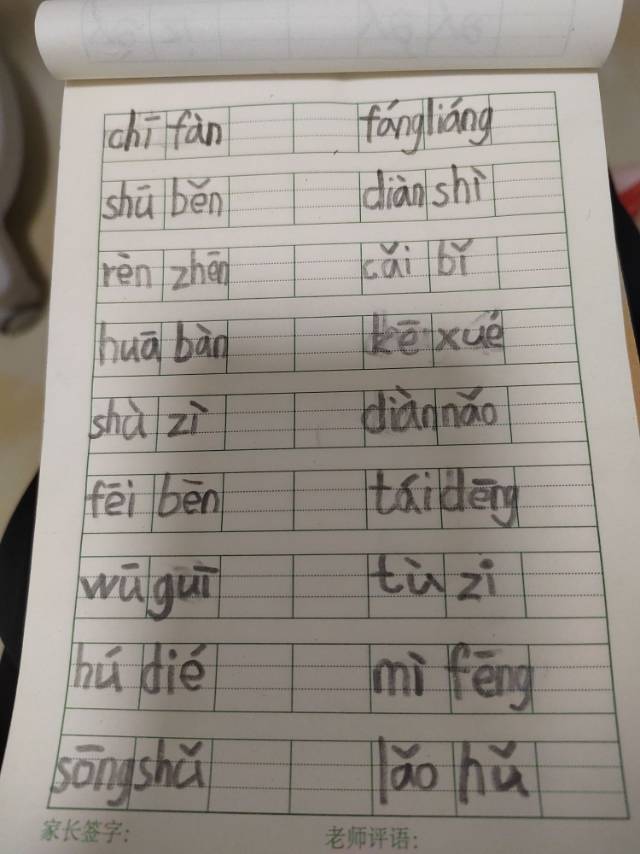 chī fàn fángliáng
shū běn diàn shì
rèn zhēn cǎi bǐ
huā bàn kē xué
shà zì diàn nǎo
fēi bēn tái dēng
wū guī tù zi
hú dié mì fēng
sōng shǔ lǎo hǔ
家长签字: 老师评语: